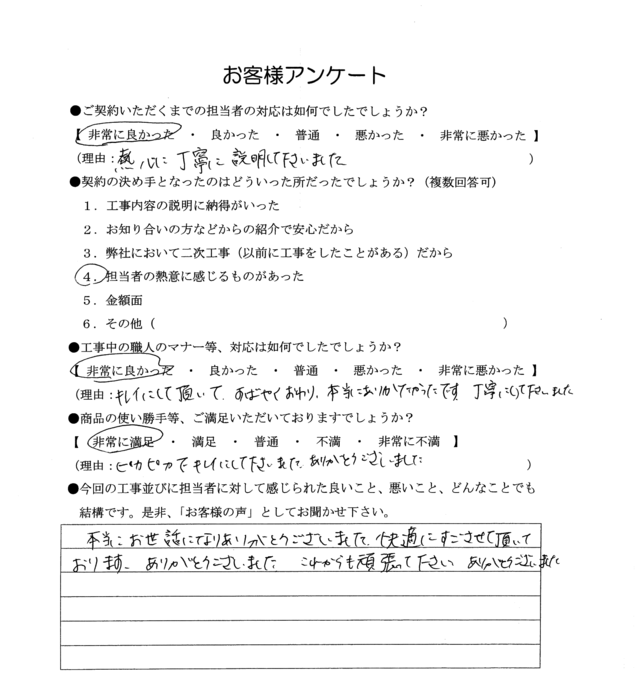 お客様アンケート
●ご契約いただくまでの担当者の対応は如何でしたでしょうか？
【 非常に良かった ・ 良かった ・ 普通 ・ 悪かった ・ 非常に悪かった 】
(理由：熱心に丁寧に説明して下さいました )
●契約の決め手となったのはどういった所だったでしょうか？（複数回答可）
１．工事内容の説明に納得がいった
２．お知り合いの方などからの紹介で安心だから
３．弊社において二次工事（以前に工事をしたことがある）だから
４．担当者の熱意に感じるものがあった
５．金額面
６．その他（ ）
●工事中の職人のマナー等、対応は如何でしたでしょうか？
【 非常に良かった ・ 良かった ・ 普通 ・ 悪かった ・ 非常に悪かった 】
(理由：キレイにして頂いて、すばやくおわり、本当にありがたかったです 丁寧にして下さいました
●商品の使い勝手等、ご満足いただいておりますでしょうか？
【 非常に満足 ・ 満足 ・ 普通 ・ 不満 ・ 非常に不満 】
(理由：ピカピカでキレイにして下さいました、ありがとうございました )
●今回の工事並びに担当者に対して感じられた良いこと、悪いこと、どんなことでも
結構です。是非、「お客様の声」としてお聞かせ下さい。
本当にお世話になりありがとうございました、快適にすごさせて頂いて
おります、 ありがとうございました これからも頑張って下さい ありがとうございました